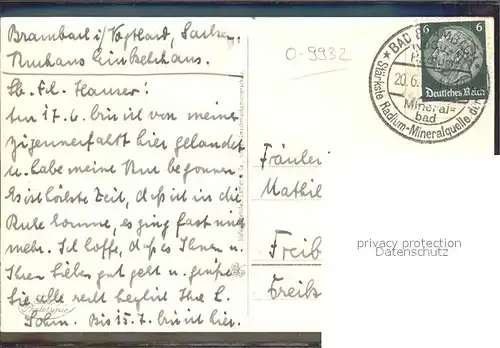 Brambach i/Vogtland, Sachsen.
Kurhaus Einkehrhaus.
Lb. Frl. Hauser!
Am 17.6. bin ich von meiner
Zigeunerfahrt hier gelandet
u. habe meine Kur begonnen.
Es ist höchste Zeit, daß ich in die
Ruhe komme, es ging fast nicht
mehr. Ich hoffe, daß es Ihnen u.
Ihren Lieben gut geht u. grüße
Sie alle recht herzlich Ihre L.
Sohm. Bis 15.7. bin ich hier.
O-9932
6 6
Deutsches Reich
BAD BRAMBACH
20.6.
Mineral=
bad
Stärkste Radium-Mineralquelle der
Fräulei
Mathil
Freib
Freib
privacy protection
Datenschutz